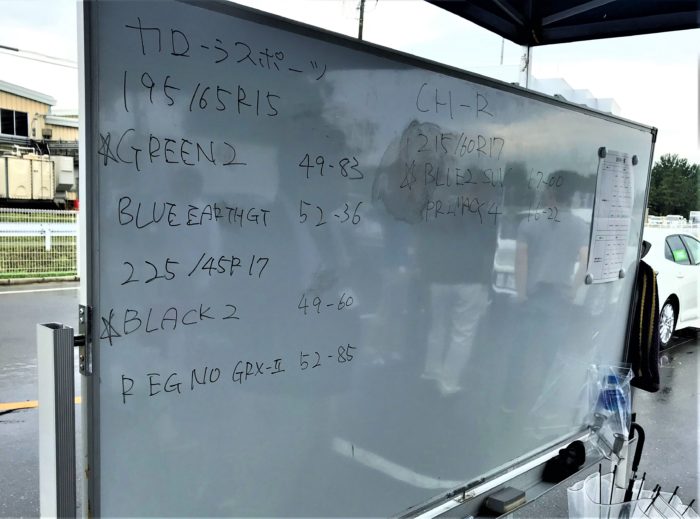 カローラスポーツ
195/65R15
☆GREEN2 49-83
BLUE EARTH GT 52-36
225/45R17
☆BLACK2 49-60
REGNO GRX-II 52-85
CH-R
215/60R17
☆BLUE2 SUV
PRIMACY 4 16-22